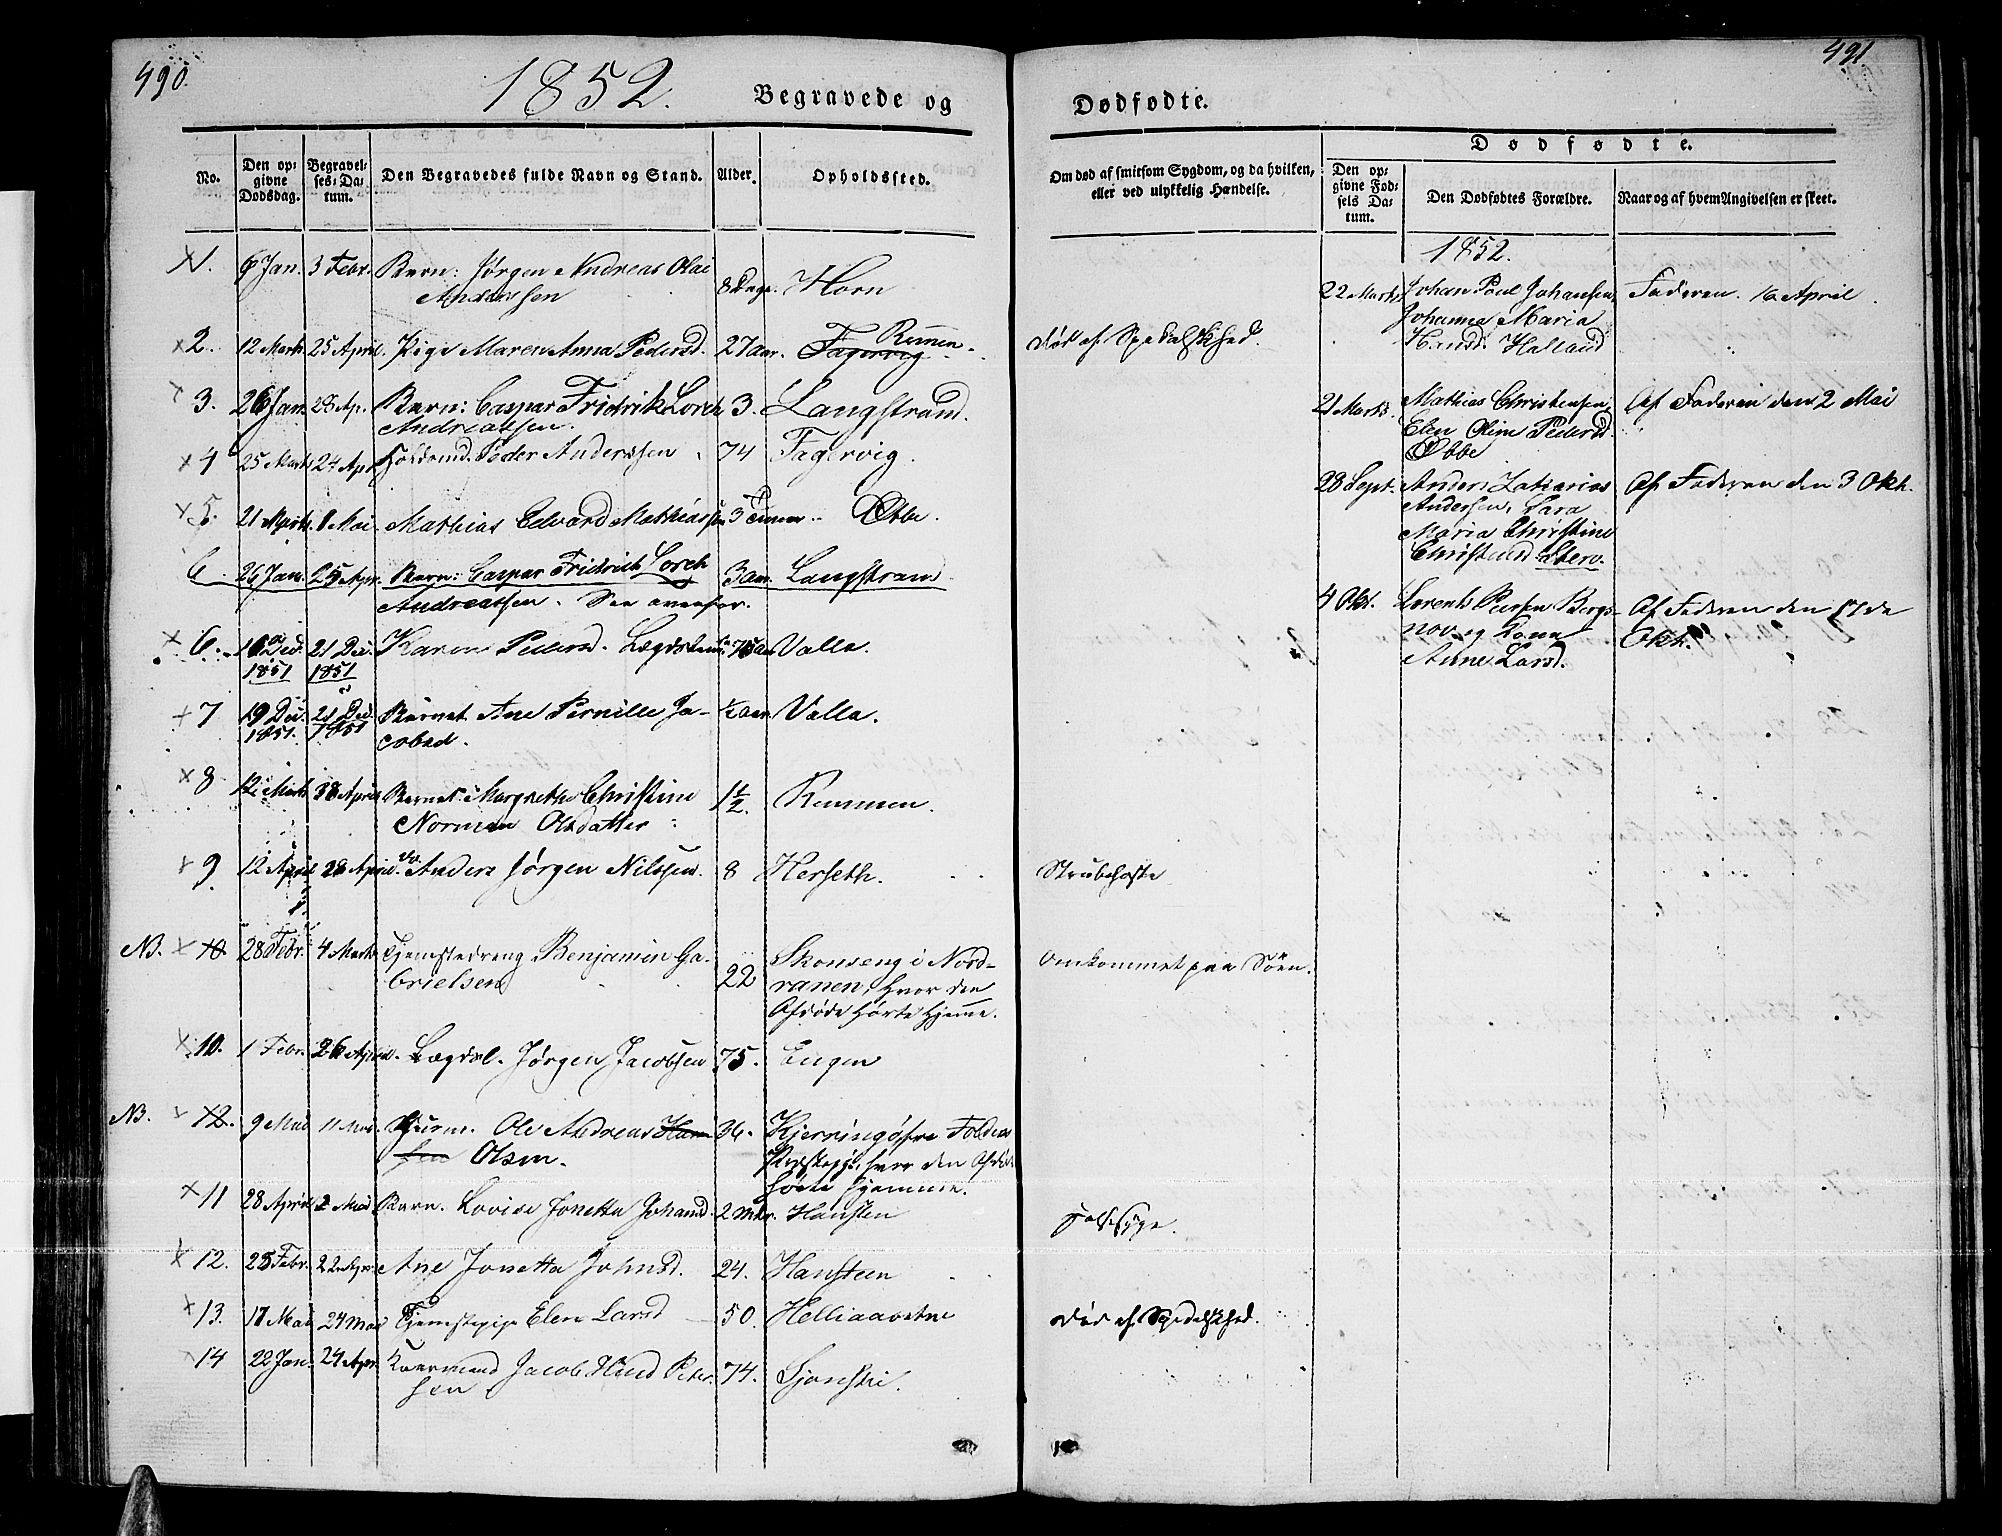 490.
1852.
Begravede og
No.
Den op-
givne
Dødsdag.
Begravel-
ses-Da-
tum.
Den Begravedes fulde Navn og Stand.
Alder.
Opholdssted.
1. 6 Jan. 3 Febr. Barn: Jørgen Andreas Olai
Anderssen 8 Dage. Horn
2. 12 Marts 25 April. Pige Maren Anna Pedersd. 27 aar. Fagervig Remen
3. 26 Jan. 28 Ap. Barn: Caspar Fridrik Lorch 3. Langstrand.
Andreassen.
4 25 Marts 24 Apr. Peder Anderssen 74 Fagervig.
5. 21 Marts 8 Mai Mathias Edvard Mathiassen 3 Timer Øbbe.
6 26 Jan. 25 Apr. Barn: Caspar Fridrich Lorch 3 aar Langstrand
Andreassen. See ovenfor.
6. 16 Dec. 21 Dec. Karen Pedersd. 75 aar Valla.
1851 1851
7 19 Dec. 21 Dec. Barnet Ane Pernille Ja- ½ aar Valla.
1851. 1851 cobsd.
8 12 Marts 28 April Barnet: Margrethe Christine 1½. Remmen.
Norman Olsdatter
9 12 April 28 April. Anders Jørgen Nilssen. 8 Herseth.
NB. 10. 28 Febr. 4 Marts Tjenestedreng Benjamin Ga-
brielsen 22 Skonseng i Nord-
ranen, hvor den
Afdøde hørte hjemme.
10. 1 Febr. 26 April. Lægdsl. Jørgen Jacobsen 75. Engen
NB. 12. 9 Mai 11 Mai. Ole Andreas Han 36. Kjerringø, Foldens
sen Olsen. Præstegj. hvor den Afdøde
hørte hjemme.
11 28 April 2 Mai Barn. Lovise Jonetta Johansd. 2 Mdr. Hansten
12. 28 Febr. 22 Apr. Ane Jonetta Johnsd. 24. Hansteen
13. 17 Mai 24 Mai Tjenestepige Elen Larsd 50. Helliaavatne
14 22 Jan. 24 Apr. Kaarmand Jacob Hind Peter- 74.
sen
491.
Dødfødte.
Om død af smitsom Sygdom, og da hvilken,
eller ved ulykkelig Hændelse.
Dødfødte.
Den op-
givne Fød-
sels Da-
tum.
Den Dødfødtes Forældre.
Naar og af hvem Angivelsen er skeet.
1852.
22 Marts Johan Poul Johansen, Faderen. 16 April.
Johanna Maria
Hansd. Halland
Død af Spedalskhed.
21 Marts. Mathias Christensen, Af Faderen den 2 Mai
Elen Oline Pedersd.
Øbbe
28 Sept. Anders Zakarias Af Faderen den 3 Okt.
Andersen, Sara
Maria Christine
Christensd
4 Okt. Lorents Pedersen Bergs- Af Faderen den 17de
nov og Kone Okt.
Anne Larsd.
Strubehoste
Omkommet paa Søen.
Død af Spedalskhed.